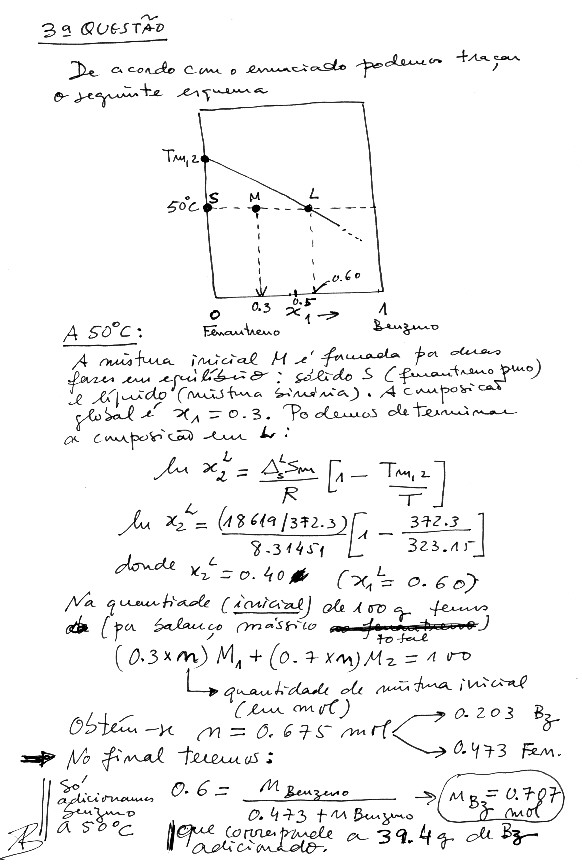 3ª QUESTÃO
De acordo com o enunciado podemos traçar
o seguinte esquema
Tm,2
50°C S M L
0.60
0 0.3 0.5 x₁ → 1
Fenantreno Benzeno
A 50°C:
A mistura inicial M é formada por duas
fases em equilíbrio: sólido S (fenantreno puro)
e líquido (mistura binária). A composição
global é x₁ = 0.3. Podemos determinar
a composição em L:
ln x₂ᴸ = ΔₛᴸSm/R [1 − Tm,2/T]
ln x₂ᴸ = (18619/372.3)/8.31451 [1 − 372.3/323.15]
donde x₂ᴸ = 0.40 (x₁ᴸ = 0.60)
Na quantidade (inicial) de 100 g temos
(por balanço mássico total)
(0.3 × n) M₁ + (0.7 × n) M₂ = 100
quantidade de mistura inicial
(em mol)
Obtém-se n = 0.675 mol → 0.203 Bz
→ 0.473 Fen.
→ No final teremos:
Só
adicionamos
benzeno
a 50°C
0.6 = n Benzeno / (0.473 + n Benzeno) → n Bz = 0.707
mol
que corresponde a 39.4 g de Bz
adicionado.